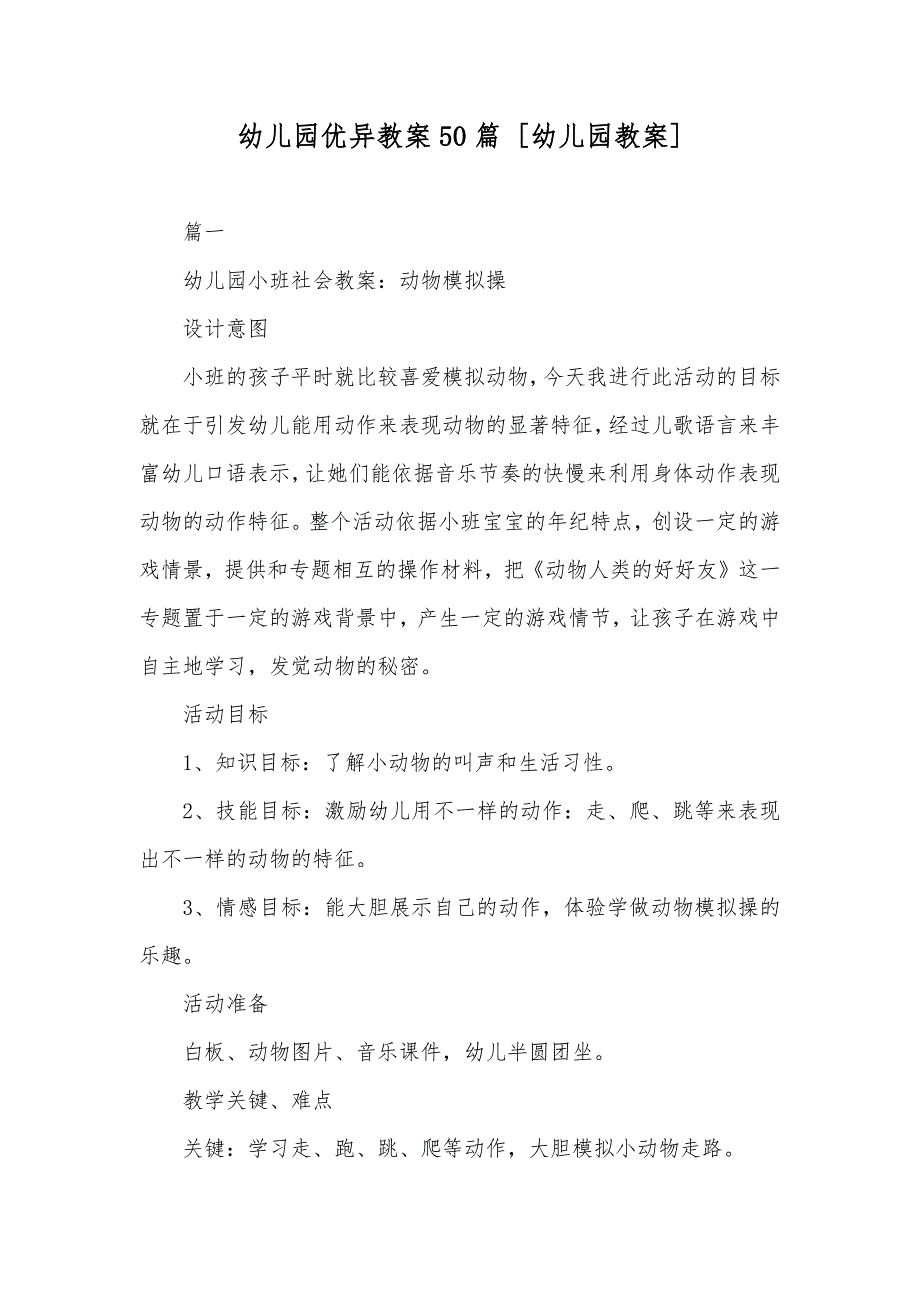 幼儿园优异教案50篇 [幼儿园教案]
篇一
幼儿园小班社会教案：动物模拟操
设计意图
小班的孩子平时就比较喜爱模拟动物，今天我进行此活动的目标
就在于引发幼儿能用动作来表现动物的显著特征，经过儿歌语言来丰
富幼儿口语表示，让她们能依据音乐节奏的快慢来利用身体动作表现
动物的动作特征。整个活动依据小班宝宝的年纪特点，创设一定的游
戏情景，提供和专题相互的操作材料，把《动物人类的好好友》这一
专题置于一定的游戏背景中，产生一定的游戏情节，让孩子在游戏中
自主地学习，发觉动物的秘密。
活动目标
1、知识目标：了解小动物的叫声和生活习性。
2、技能目标：激励幼儿用不一样的动作：走、爬、跳等来表现
出不一样的动物的特征。
3、情感目标：能大胆展示自己的动作，体验学做动物模拟操的
乐趣。
活动准备
白板、动物图片、音乐课件，幼儿半圆团坐。
教学关键、难点
关键：学习走、跑、跳、爬等动作，大胆模拟小动物走路。